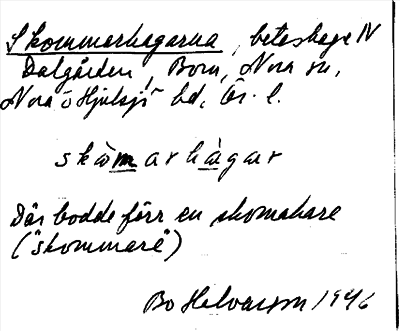 Skommarhagarna, beteshage N
Dalgården, Born, Nora sn,
Nora o Hjulsjö hd, Ör. l.
skòmarhàgar
Där bodde förr en skomakare
("skommare")
Bo Helvarson 1946